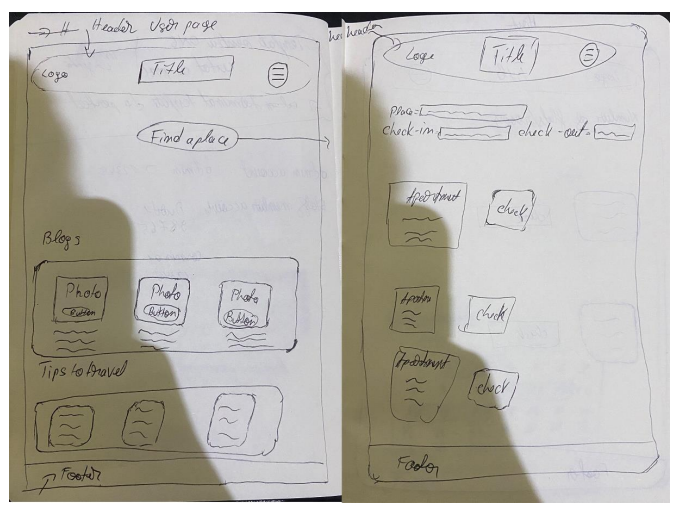 Header User page
Logo
Title
Find a place
Blogs
Photo
Button
Photo
Button
Photo
Button
Tips to travel
Footer
header
Logo
Title
place=
check-in= check-out=
Apartment
check
check
Apartment
check
Footer